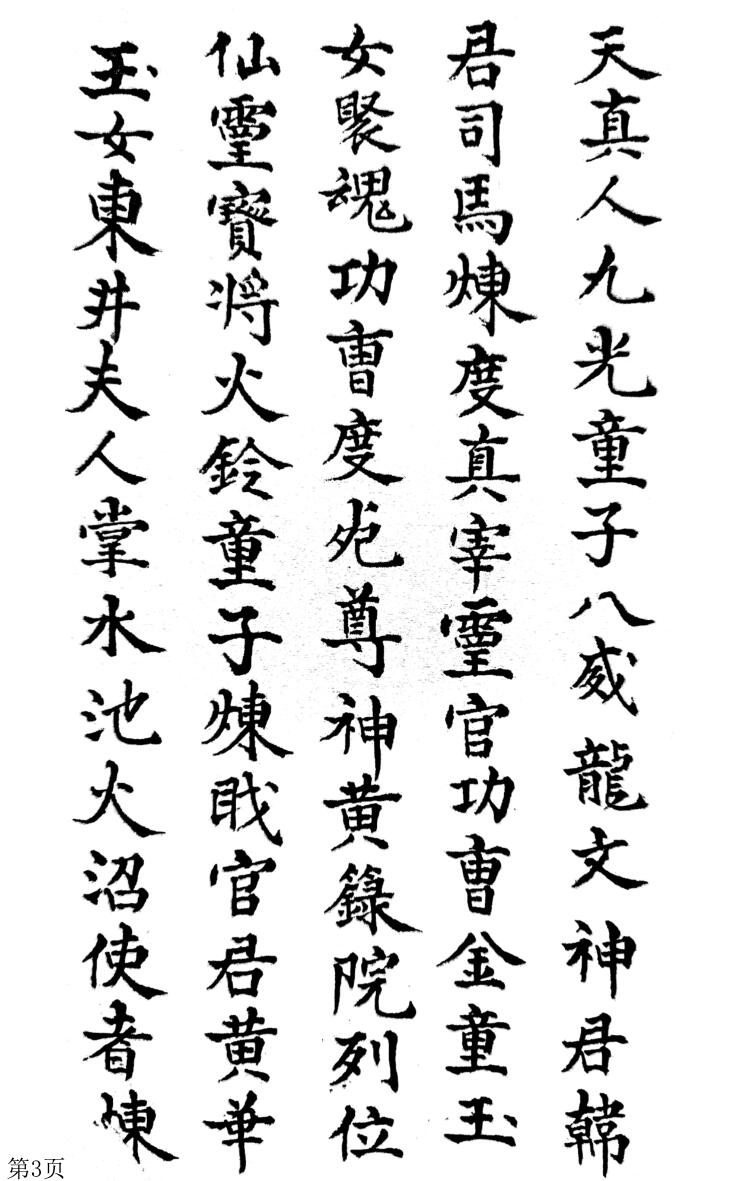 天真人九光童子八威龍文神君韓
君司馬煉度真宰靈官功曹金童玉
女聚魂功曹度魂尊神黃籙院列位
仙靈寶將火鈴童子煉職官君黃華
玉女東井夫人掌水池火沼使者煉
第3页